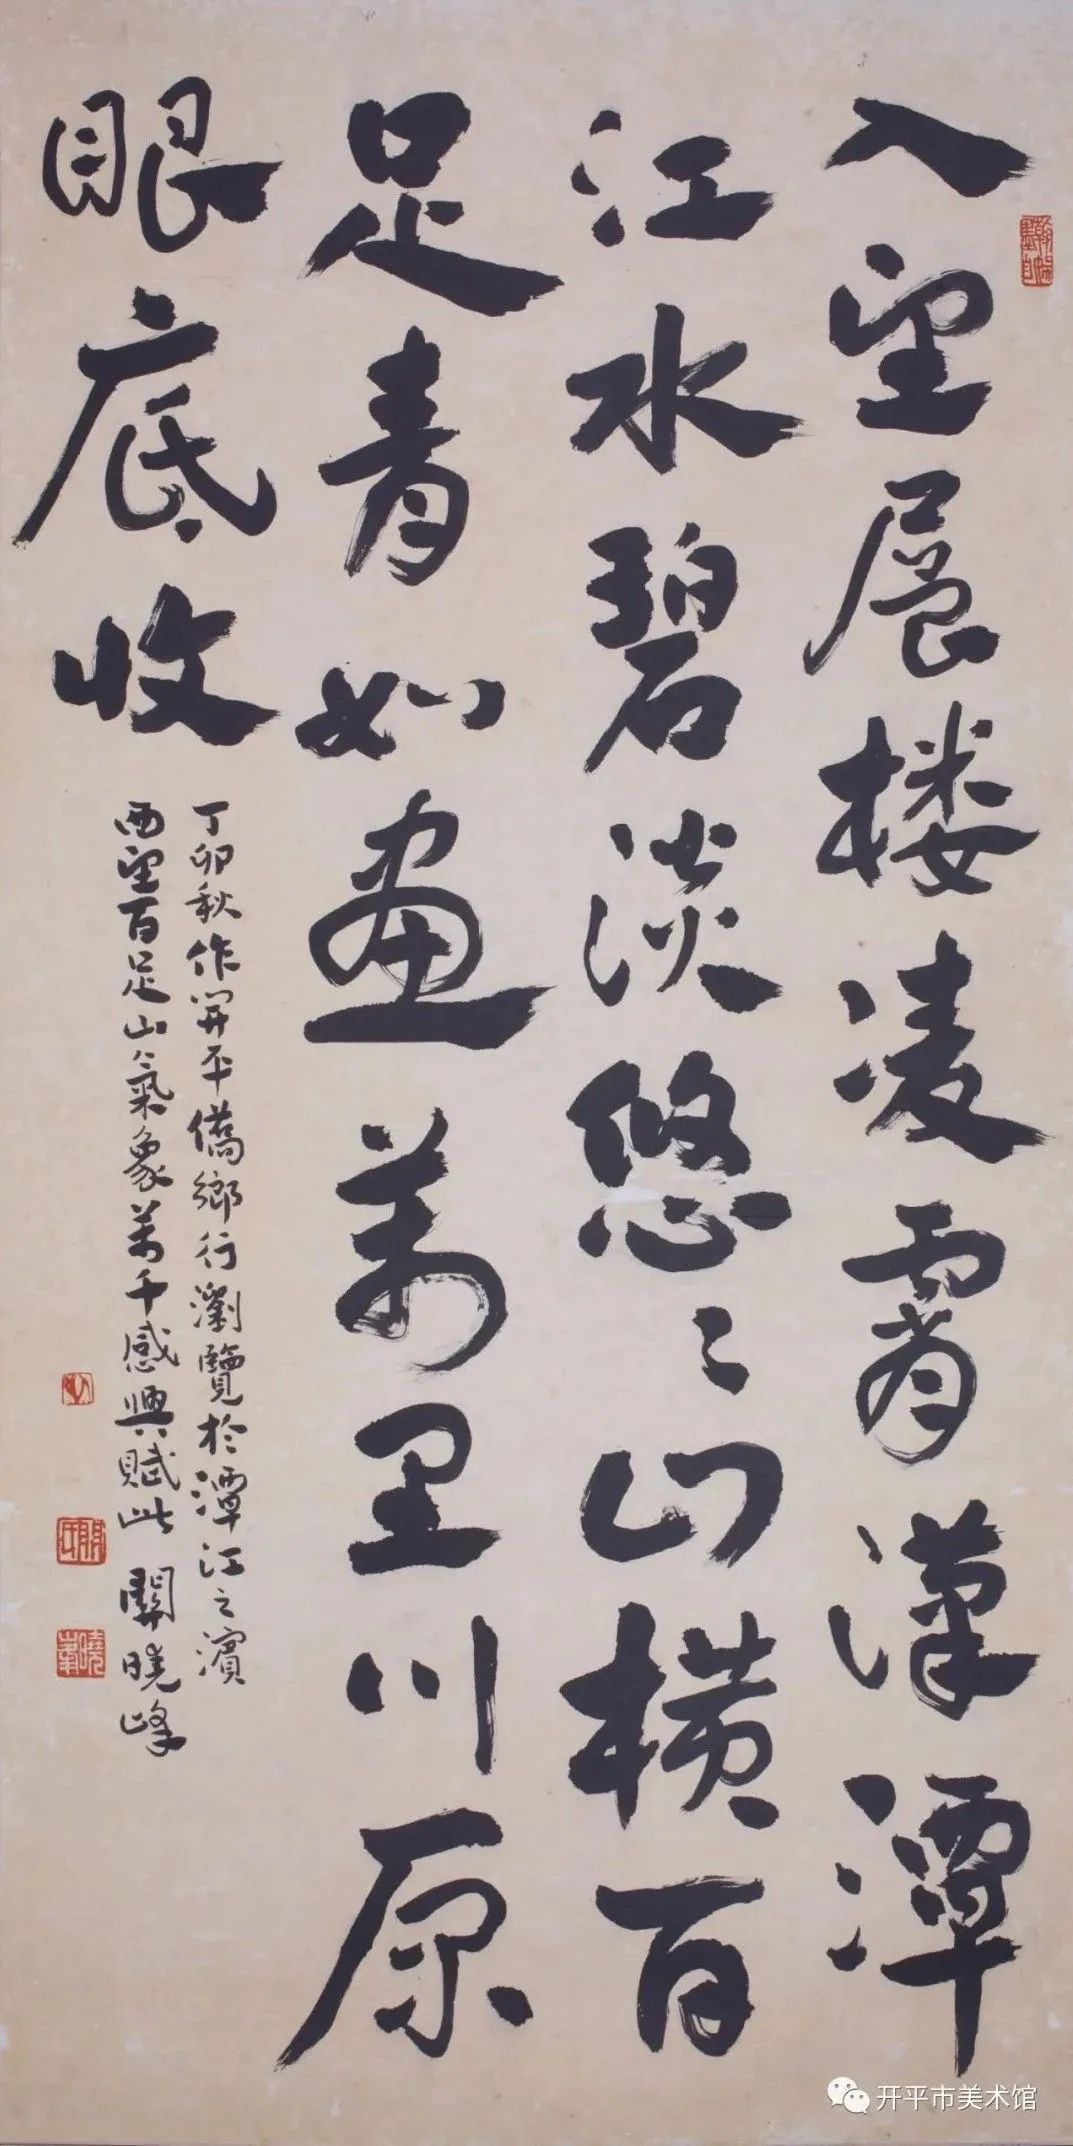 入望层楼凌霄漢潭
江水碧淡悠〻山横百
足青如畫萬里川原
眼底收
丁卯秋作開平僑鄉行瀏覽於潭江之濱
西望百足山氣象萬千感興賦此 關曉峰
關氏
曉峯
开平市美术馆